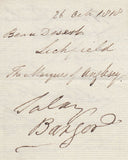 26 Oct 1818
Beau Desert
Lichfield
The Marquess of Anglesey
Bangor